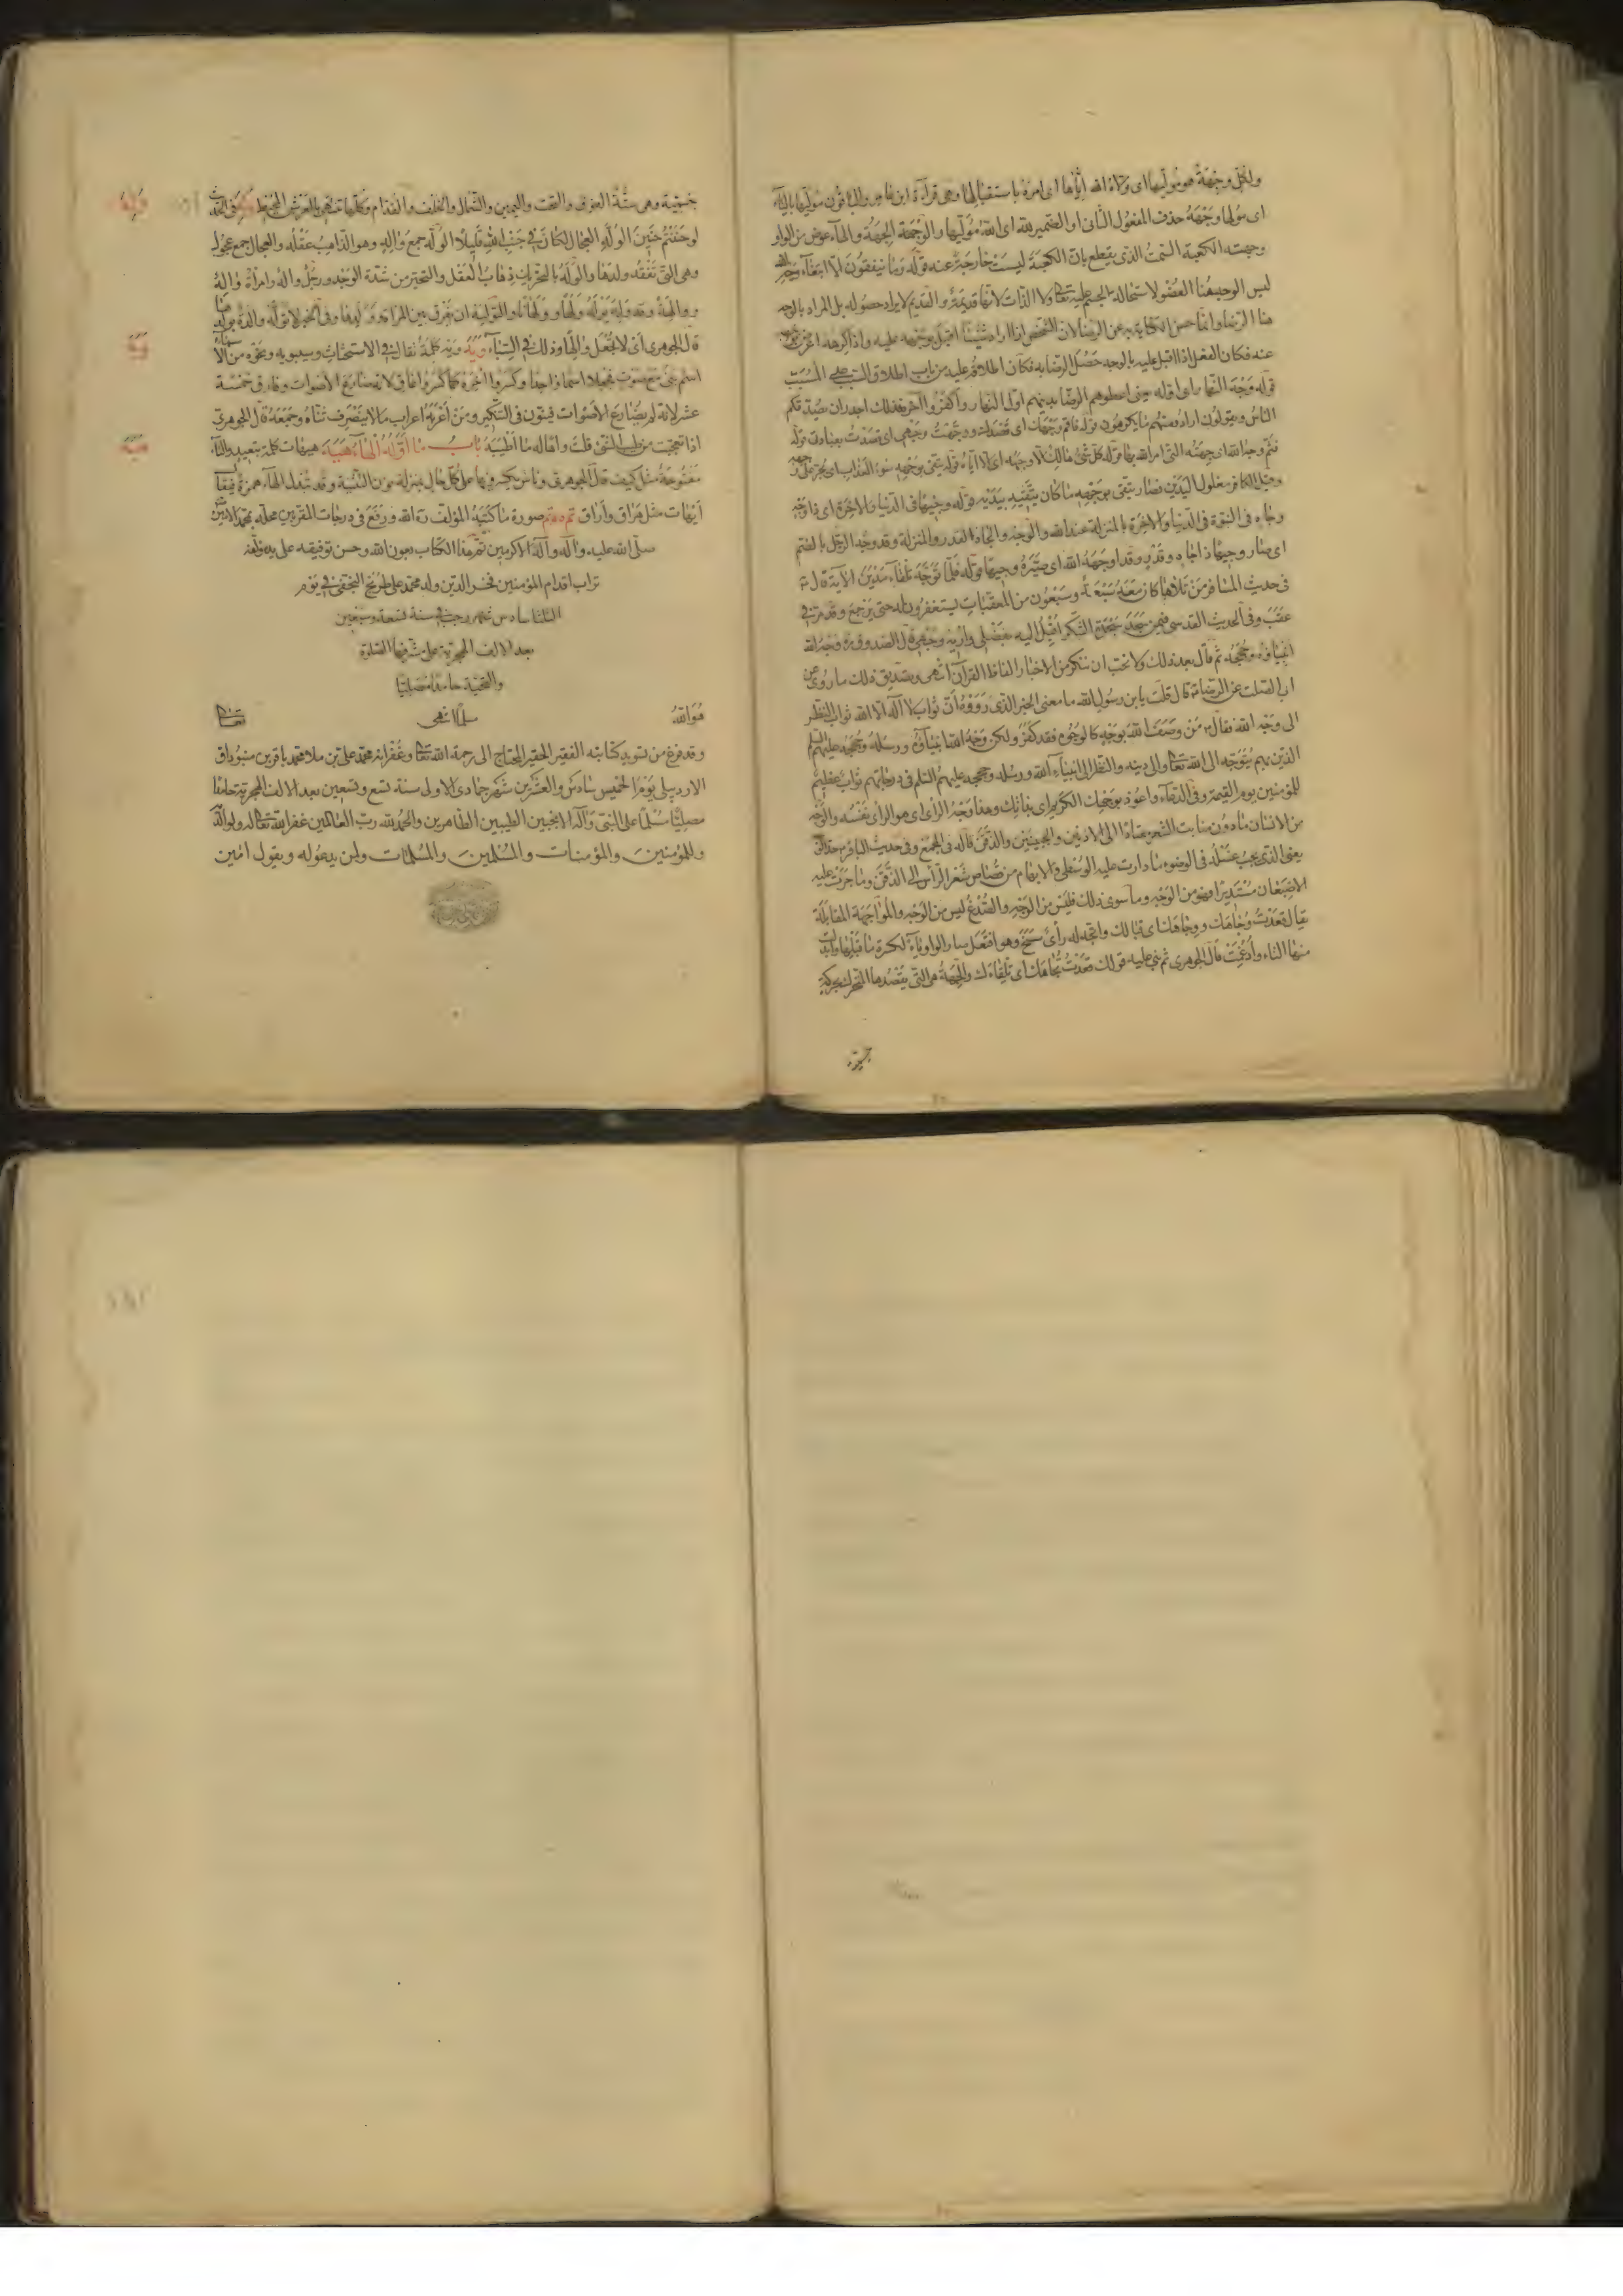 ولكل وجهة هو موليها اى ولاه الله اياها اى امره باستقبالها وهى قراءة ابن عامر والباقون موليها بالياء
اى موليها وجهه حذف المفعول الثانى او الضمير لله اى الله موليها والوجهة الجهة والهاء عوض من الواو
وجهته الكعبة السمت الذى يقطع بان الكعبة ليست خارجة عنه قوله وما تنفقون الا ابتغاء وجه الله
ليس الوجه هنا العضو لاستحالة الجسم عليه تعالى ولا الذات لانها قديمة والقديم لا يراد حصوله بل المراد بالوجه
هنا الرضا وانما حسن الكناية به عن الرضا لان الشخص اذا اراد شيئا اقبل بوجهه عليه واذا كرهه اعرض بوجهه
عنه فكان الفعل اذا اقبل عليه بالوجه حصل الرضا به فكان اطلاقه عليه من باب اطلاق السبب على المسبب
قوله وجه النهار اى اوله اول النهار واكفروا آخره
الناس ويقولون قوله فاقم وجهك اى قصدك ووجهت وجهى اى قصدت بعبادتى قوله
فثم وجه الله اى جهته التى امر الله بها قوله كل شئ هالك الا وجهه اى الا اياه قوله يتقى بوجهه سوء العذاب اى
وقيل الكافر مغلول اليدين فصار يتقى بوجهه ما كان يتقيه بيديه قوله وجيها فى الدنيا والاخرة اى ذا وجه
وجاه فى النبوة فى الدنيا والاخرة بالمنزلة عند الله والوجه والجاه القدر والمنزلة وقد وجه الرجل بالضم
اى صار وجيها ذا جاه وقدر وقد اوجهه الله اى صيره وجيها قوله فلما توجه تلقاء مدين الاية قال
فى حديث المسافر من تلاها كان معه سبعة وسبعون من المعقبات يستغفرون له حتى يرجع وقد مر فى
عقب وفى الحديث القدسى فيمن سجد سجدة الشكر اقبل اليه بفضلى واريه وجهى قال الصدوق ره وجه الله
انبياؤه وحججه ثم قال بعد ذلك ولا نحب ان ننكر من الاخبار الفاظ القرآن انتهى وتصديق ذلك ما روى عن
ابى الصلت عن الرضا قال قلت يا بن رسول الله ما معنى الخبر الذى رووه ان ثواب لا اله الا الله ثواب النظر
الى وجه الله فقال من وصف الله بوجه كالوجوه فقد كفر ولكن وجه الله انبياؤه ورسله وحججه عليهم السلم
الذين بهم يتوجه الى الله تعالى والى دينه والنظر الى انبياء الله ورسله وحججه عليهم السلم فى درجاتهم ثواب عظيم
للمؤمنين يوم القيمة وفى الدعاء واعوذ بوجهك الكريم اى بذاتك وهذا وجه الراى اى هو الراى نفسه والوجه
من الانسان ما دون منابت الشعر معتادا الى الاذنين والجبينين والذقن قاله فى المجمع وفى حديث الباقر
يعنى الذى يجب غسله فى الوضوء ما دارت عليه الوسطى والابهام من قصاص شعر الراس الى الذقن وما جرت عليه
الاصبعان مستديرا فهو من الوجه وما سوى ذلك فليس من الوجه والصدغ ليس من الوجه والمواجهة المقابلة
يقال قعدت وجاهك ووجاهك اى قبالك واتجه له راى سنح وهو افتعل صار الواو ياء لكسرة ما قبلها وابدلت
منها التاء وادغمت قال الجوهرى ثم بنى عليه قولك قعدت تجاهك اى تلقاءك والجهة هى التى يقصدها المتحرك بحركة
جسمية وهى ستة الفوق والتحت واليمين والشمال والخلف والقدام وكلها تنتهى بالعرش المحيط وله فى الحديث
لو حننتم حنين الوله العجال لكان فى جنب الله قليلا الوله جمع واله وهو الذاهب عقله والعجال جمع عجول
وهى التى تفقد ولدها والوله بالتحريك ذهاب العقل والتحير من شدة الوجد ورجل واله وامراة واله
ووالهة وقد وله يوله ولها وولهانا والتوليه ان يفرق بين المراة وولدها وفى الخبر لا توله والدة بولدها
قال الجوهرى اى لا تجعل والها وذلك فى السبايا ويه ويه كلمة تقال فى الاستحثاث وسيبويه ونحوه من الاسماء
اسم بنى مع صوت فجعلا اسما واحدا وكسروا اخره كما كسروا غاق لانه ضارع الاصوات وفارق خمسة
عشر لانه لم يضارع الاصوات فينون فى التنكير ومن اعربه اعراب ما لا ينصرف ثناه وجمعه قال الجوهرى
اذا تعجبت من طيب الشئ قلت واها له ما اطيبه باب ما اوله الهاء هيه هيهات كلمة تبعيد والتاء
مفتوحة مثل كيف قال الجوهرى وناس يكسرونها على كل حال بمنزلة نون التثنية وقد تبدل الهاء همزة فيقال
ايهات مثل هراق واراق تم صورة ما كتبه المؤلف ره الله ورفع فى درجات المقربين محله بمحمد الامين
صلى الله عليه واله وآله الاكرمين تم هذا الكتاب بعون الله وحسن توفيقه على يد مؤلفه
تراب اقدام المؤمنين فخر الدين ولد محمد على طريح النجفى فى يوم
الثلثا سادس شهر رجب فى سنة تسعة وسبعين
بعد الالف الهجرية على مشرفها الصلوة
والتحية حامدا مصليا
مسلما انتهى
هو الله تعالى
وقد فرغ من تسويد كتابته الفقير الحقير المحتاج الى رحمة الله تعالى وغفرانه محمد على بن ملا محمد باقر بن
الاردبيلى يوم الخميس سادس والعشرين شهر جمادى الاولى سنة تسع وتسعين بعد الالف الهجرية حامدا
مصليا مسلما على النبى وآله الانجبين الطيبين الطاهرين والحمد لله رب العالمين غفر الله تعالى له ولوالديه
وللمؤمنين والمؤمنات والمسلمين والمسلمات ولمن يدعو له ويقول امين